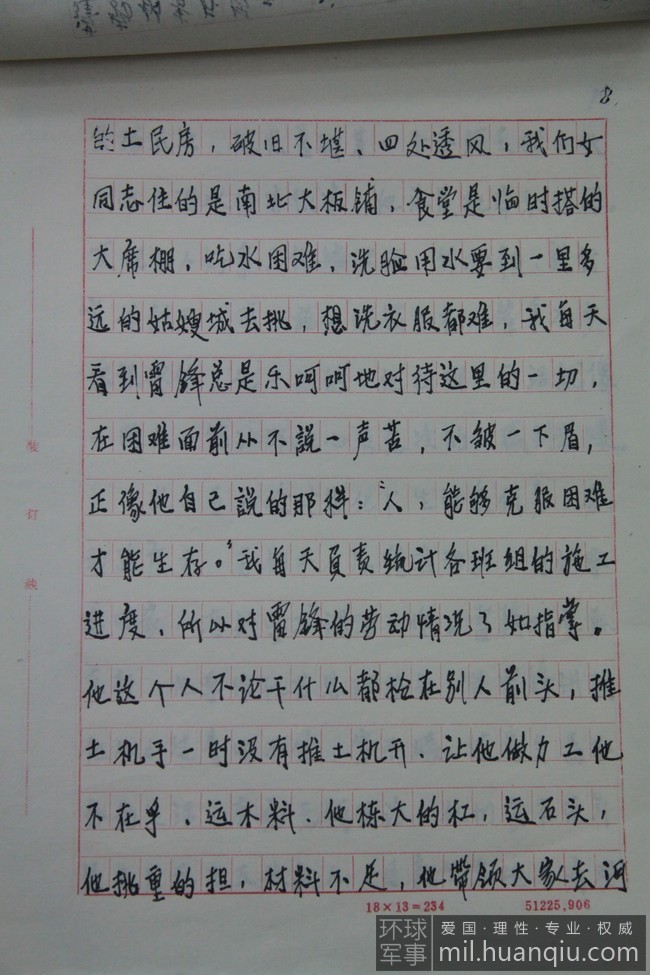 8
的土民房，破旧不堪、四处透风，我们女
同志住的是南北大板铺，食堂是临时搭的
大席棚，吃水困难，洗脸用水要到一里多
远的姑嫂城去挑，想洗衣服都难，我每天
看到雷锋总是乐呵呵地对待这里的一切，
在困难面前从不説一声苦，不皱一下眉，
正像他自己説的那样：“人，能够克服困难
才能生存。”我每天負责统计各班组的施工
进度，所以对雷锋的劳动情况了如指掌。
他这个人不论干什么都抢在别人前头，推
土机手一时没有推土机开、让他做力工他
不在乎、运木料、他拣大的杠，运石头，
他挑重的担，材料不足，他带领大家去河
装
订
线
18×13=234
51225.906
环球
军事
爱国·理性·专业·权威
mil.huanqiu.com